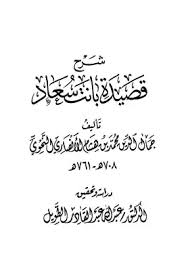 شرح
قصيدة بانت سعاد
تأليف
جمال الدين محمد بن هشام الأنصاري النحوي
٧٠٨هـ - ٧٦١هـ
دراسة وتحقيق
الدكتور عبدالله عبدالقادر الطويل